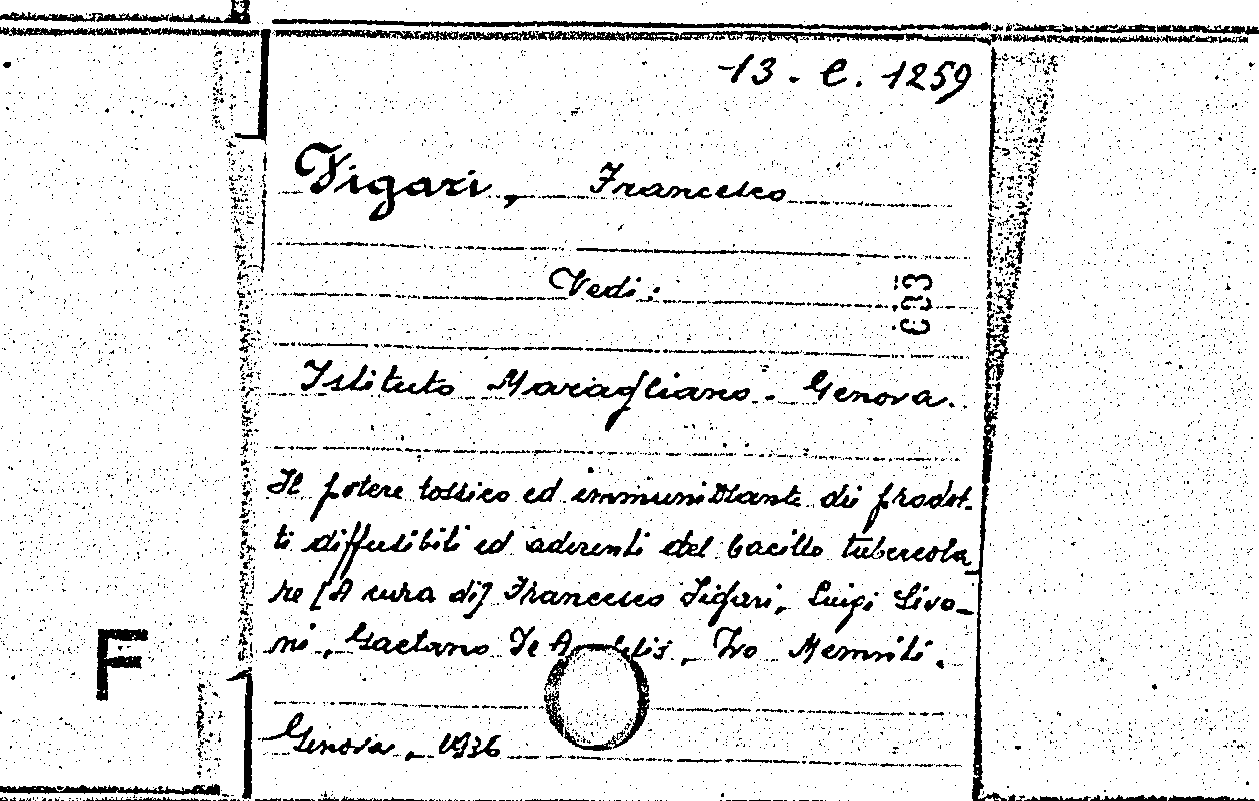 13. C. 1259
Figari, Francesco
Vedi:
603
Istituto Maragliano. Genova.
Il potere tossico ed immunizzante dei prodot-
ti diffusibili ed aderenti del bacillo tubercola
re [A cura di] Francesco Figari, Luigi Sivo-
ni, Gaetano De lis, Ivo Memniti.
F
Genova, 1936